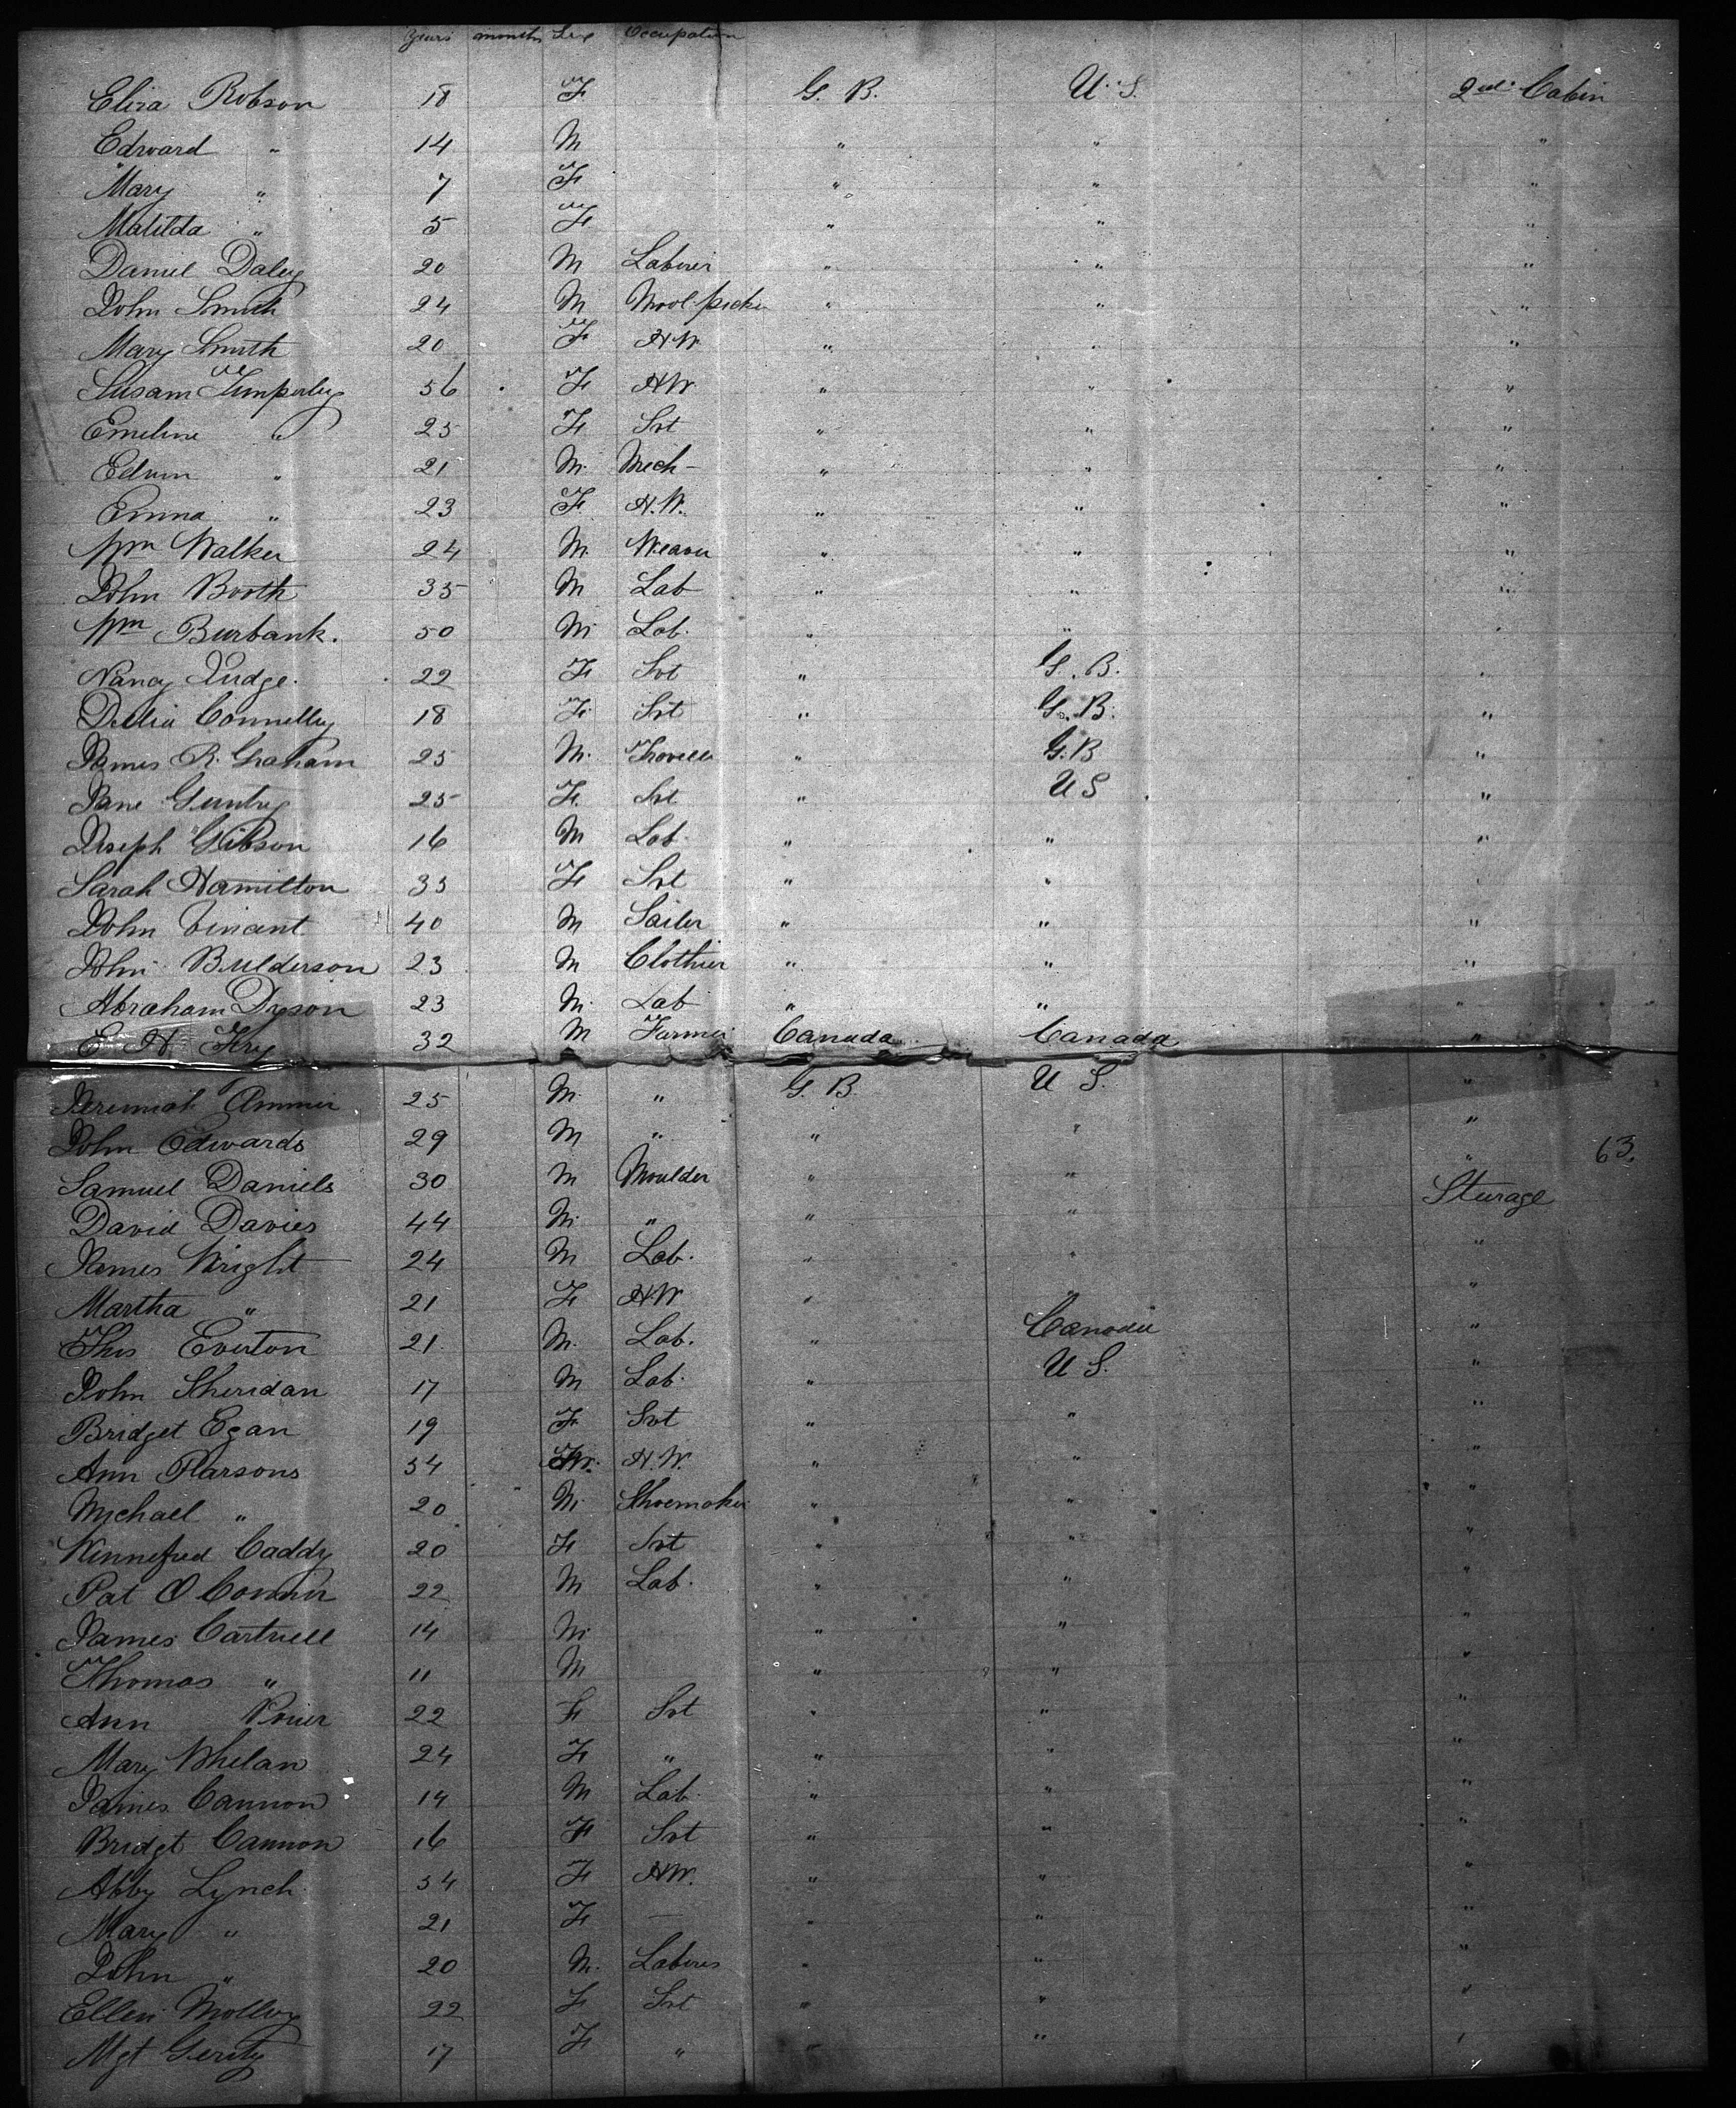 Years months Sex Occupation
Eliza Robson 18 F G. B. U. S. 2nd Cabin
Edward " 14 M " " "
Mary " 7 F " " "
Matilda " 5 F " " "
Daniel Daley 20 M Laborer " " "
John Smith 24 M Wool picker " " "
Mary Smith 20 F H.W " " "
Susam Timperley 56 F HW " " "
Emeline " 25 F Svt " " "
Edwin " 21 M. Mech- " " "
Emma " 23 F. H.W. " " "
Wm Walker 24 M. Weaver " " "
John Booth 35 M Lab " " "
Wm Burbank. 50 M Lab. " " "
Nancy Judge. 22 F Svt " G. B. "
Delia Connelly 18 F. Svt " G. B. "
James R. Graham 25 M. " G.B "
Jane Gentry 25 F. Svt " U S "
Joseph Gibson 16 M Lab. " " "
Sarah Hamilton 35 F Svt " " "
John Vincent 40 M Sailer " " "
John Bulderson 23 M Clothier " " "
Abraham Dyson 23 M. Lab " " "
E H 32 M Farmer Canada Canada "
Jeremiah Ammer 25 M. " G. B. U S. "
John Edwards 29 M " " " "
Samuel Daniels 30 M Moulder " " " 63.
David Davies 44 M. " " " Sturage
James Wright 24 M Lab. " " "
Martha " 21 F HW " " "
Thos Everton 21. M. Lab. " Canada "
John Sheridan 17 M Lab. " U S. "
Bridget Egan 19 F Svt " " "
Ann Parsons 54 H.W. " " "
Michael " 20 M. Shoemaker " " "
Winnefred Caddy 20 F Svt " " "
Pat O Connor 22 M Lab. " " "
James Cartwell 14 M. " " "
Thomas " 11 M " " "
Ann 22 F Svt " " "
Mary Whelan 24 F " " " "
James Cannon 14 M Lab. " " "
Bridgt Cannon 16 F Svt " " "
Abby Lynch 54 F HW. " " "
Mary " 21 F — " " "
John " 20 M. Laborer " " "
Ellen Molloy 22 F Svt " " "
Mgt Gerity 17 F " " " "